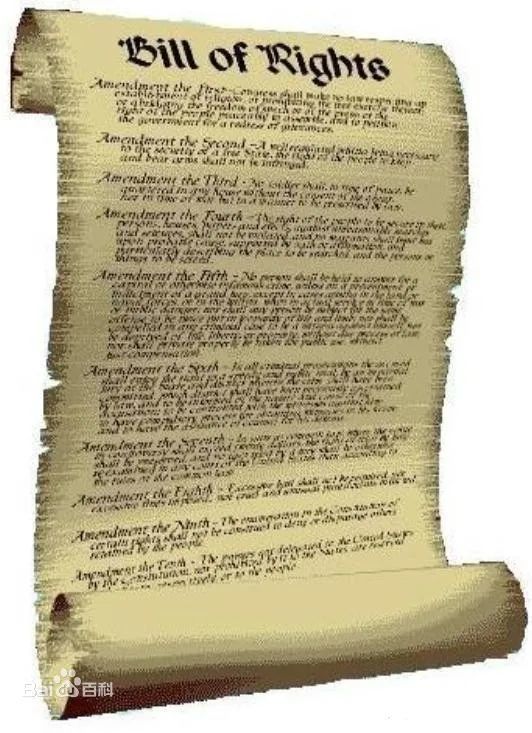 Bill of Rights
Amendment the First - Congress shall make no law respecting an
establishment of religion, or prohibiting the free exercise thereof;
or abridging the freedom of speech or of the press or the
right of the people peaceably to assemble, and to petition
the government for a redress of grievances.
Amendment the Second - A well regulated militia being necessary
to the security of a free State, the right of the people to keep
and bear arms shall not be infringed.
Amendment the Third - No soldier shall, in time of peace, be
quartered in any house without the consent of the
in time of war but in a manner to be prescribed by law.
Amendment the Fourth - the right of the people to be secure in their
persons, houses, papers and effects against unreasonable searches
and seizures, shall not be violated and no warrants shall issue but
upon probable cause, supported by oath or affirmation and
particularly describing the place to be searched and the persons or
things to be seized.
Amendment the Fifth - No person shall be held to answer for a
capital or otherwise infamous crime, unless on a presentment or
indictment of a grand jury, except in cases
or public danger; nor shall any person be subject for the same
offense to be twice put in jeopardy of life and limb nor shall be
compelled in any criminal case to be a witness against himself, nor
be deprived of life, liberty or property, without due process of law;
nor shall private property be taken for public use, without
just compensation.
Amendment the Sixth - In all criminal prosecutions the accused
shall enjoy the right
committed, which district shall have been previously ascertained
by law, and to be informed of the nature and cause
to be confronted with the witnesses against
to have compulsory process for obtaining witnesses in his favor
and to have the assistance of counsel for his defense.
Amendment the Seventh - In suits at common law, where the value
in controversy shall exceed
shall be preserved, and no fact tried by a jury shall be otherwise
re-examined in any court of the United States than according to
the rules of the common law.
Amendment the Eighth - Excessive bail shall not be required, nor
excessive fines imposed, nor cruel and unusual punishments inflicted.
Amendment the Ninth - The enumeration in the Constitution of
certain rights shall not be construed to deny or disparage others
retained by the people.
Amendment the Tenth - The powers not delegated to the United States
by the Constitution, nor prohibited by it to the States, are reserved
respectively, or to the people
Bai 百科